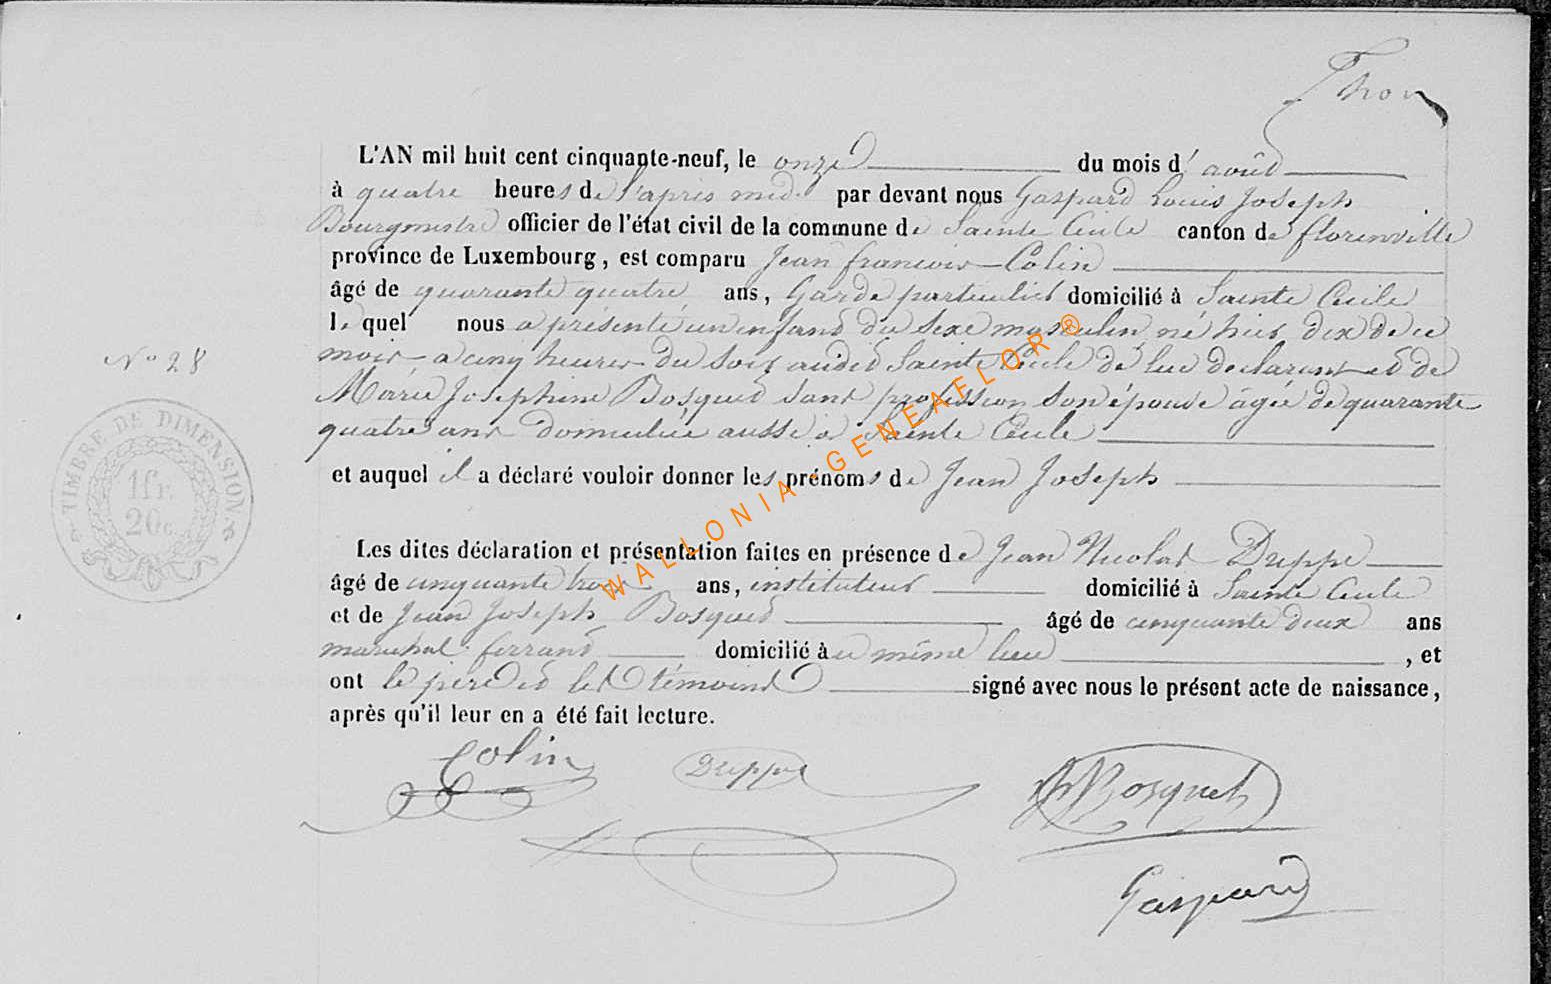 Thon
L'AN mil huit cent cinquante-neuf, le onze du mois d'août
à quatre heures de l'après midi par devant nous Gaspard Louis Joseph
Bourgmestre officier de l'état civil de la commune de Sainte Cecile canton de florenville
province de Luxembourg, est comparu Jean francois Colin
âgé de quarante quatre ans, Garde particulier domicilié à Sainte Cecile
le quel nous a présenté un enfant du sexe masculin, né hier dix de ce
mois a cinq heures du soir audit Sainte Cecile de lui declarant et de
Marie Josephine Bosquet sant profession son épouse âgée de quarante
quatre ans domiciliée aussi à Sainte Cecile
et auquel il a déclaré vouloir donner les prénoms de Jean Joseph
Les dites déclaration et présentation faites en présence de Jean Nicolas Druppe
âgé de cinquante trois ans, instituteur domicilié à Sainte Cecile
et de Jean Joseph Bosquet âgé de cinquante deux ans
marechal ferrant domicilié à u même lieu, et
ont le père et les témoins signé avec nous le présent acte de naissance,
après qu'il leur en a été fait lecture.
Colin Druppe Bosquet
Gaspard
N° 28
TIMBRE DE DIMENSION
1fr.
20c.
WALLONIA-GENEAFLOR®